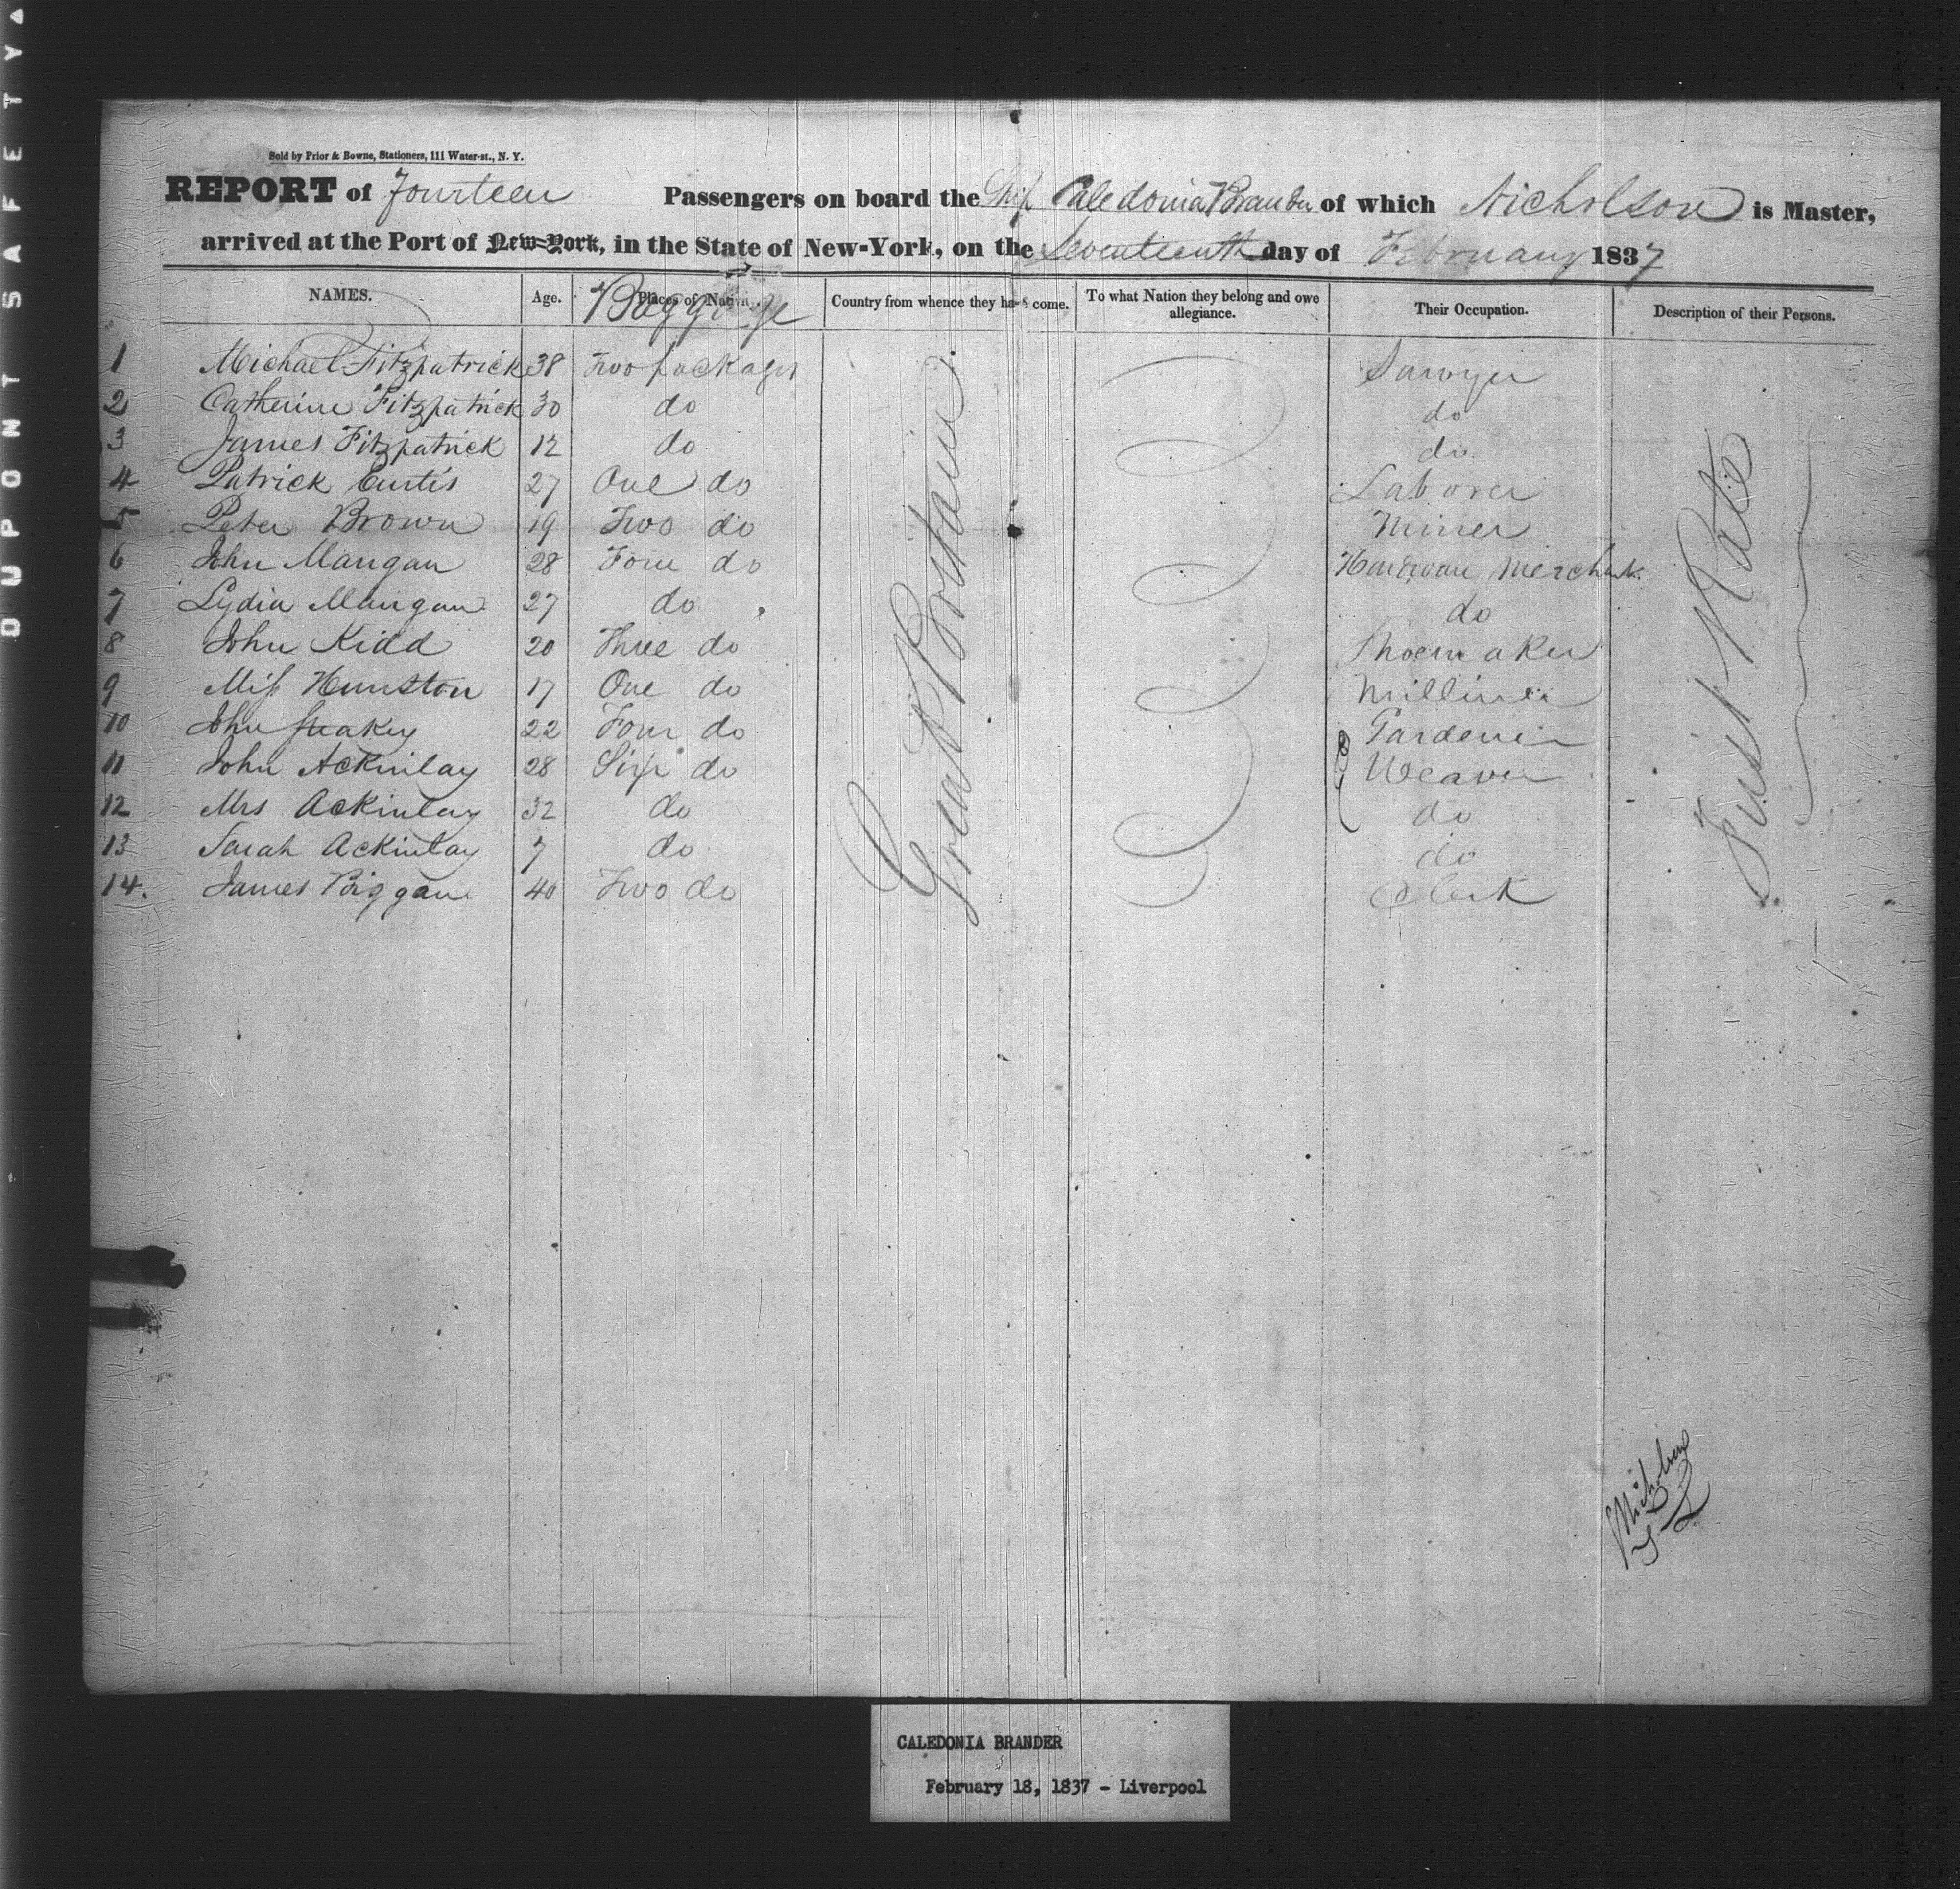 DUPONT SAFETY
Sold by Prior & Bowne, Stationers, 111 Water-st., N. Y.
REPORT of Fourteen Passengers on board the Ship Caledonia Brander of which Nicholson is Master,
arrived at the Port of New-York, in the State of New-York, on the Seventeenth day of February 1837
NAMES. Age. Places of Baggage Country from whence they have come. To what Nation they belong and owe allegiance. Their Occupation. Description of their Persons.
1 Michael Fitzpatrick 38 Two packages Sawyer
2 Catherine Fitzpatrick 30 do do
3 James Fitzpatrick 12 do do
4 Patrick Curtis 27 One do Laborer
5 Peter Brown 19 Two do Miner
6 John Mangan 28 Four do Hardware Merchant
7 Lydia Mangan 27 do do
8 John Kidd 20 Three do Shoemaker
9 Miss Hunston 17 One do Milliner
10 John 22 Four do Gardener
11 John Ackinlay 28 Six do Weaver
12 Mrs Ackinlay 32 do do
13 Sarah Ackinlay 7 do do
14. James Biggan 40 Two do Clerk
Great Britain
First Rate
Nicholson
CALEDONIA BRANDER
February 18, 1837 - Liverpool